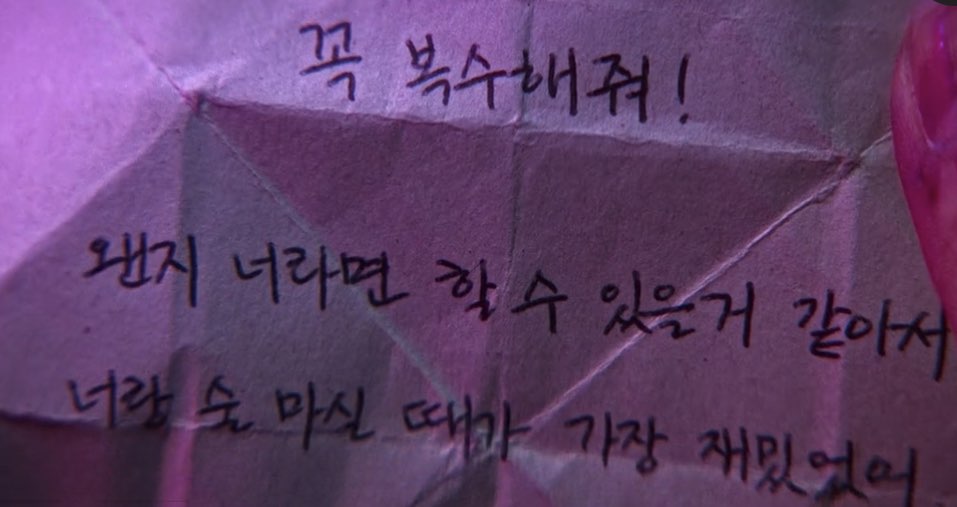 꼭 복수해줘!
왠지 너라면 할 수 있을거 같아서
너랑 술 마실 때가 가장 재밌었어